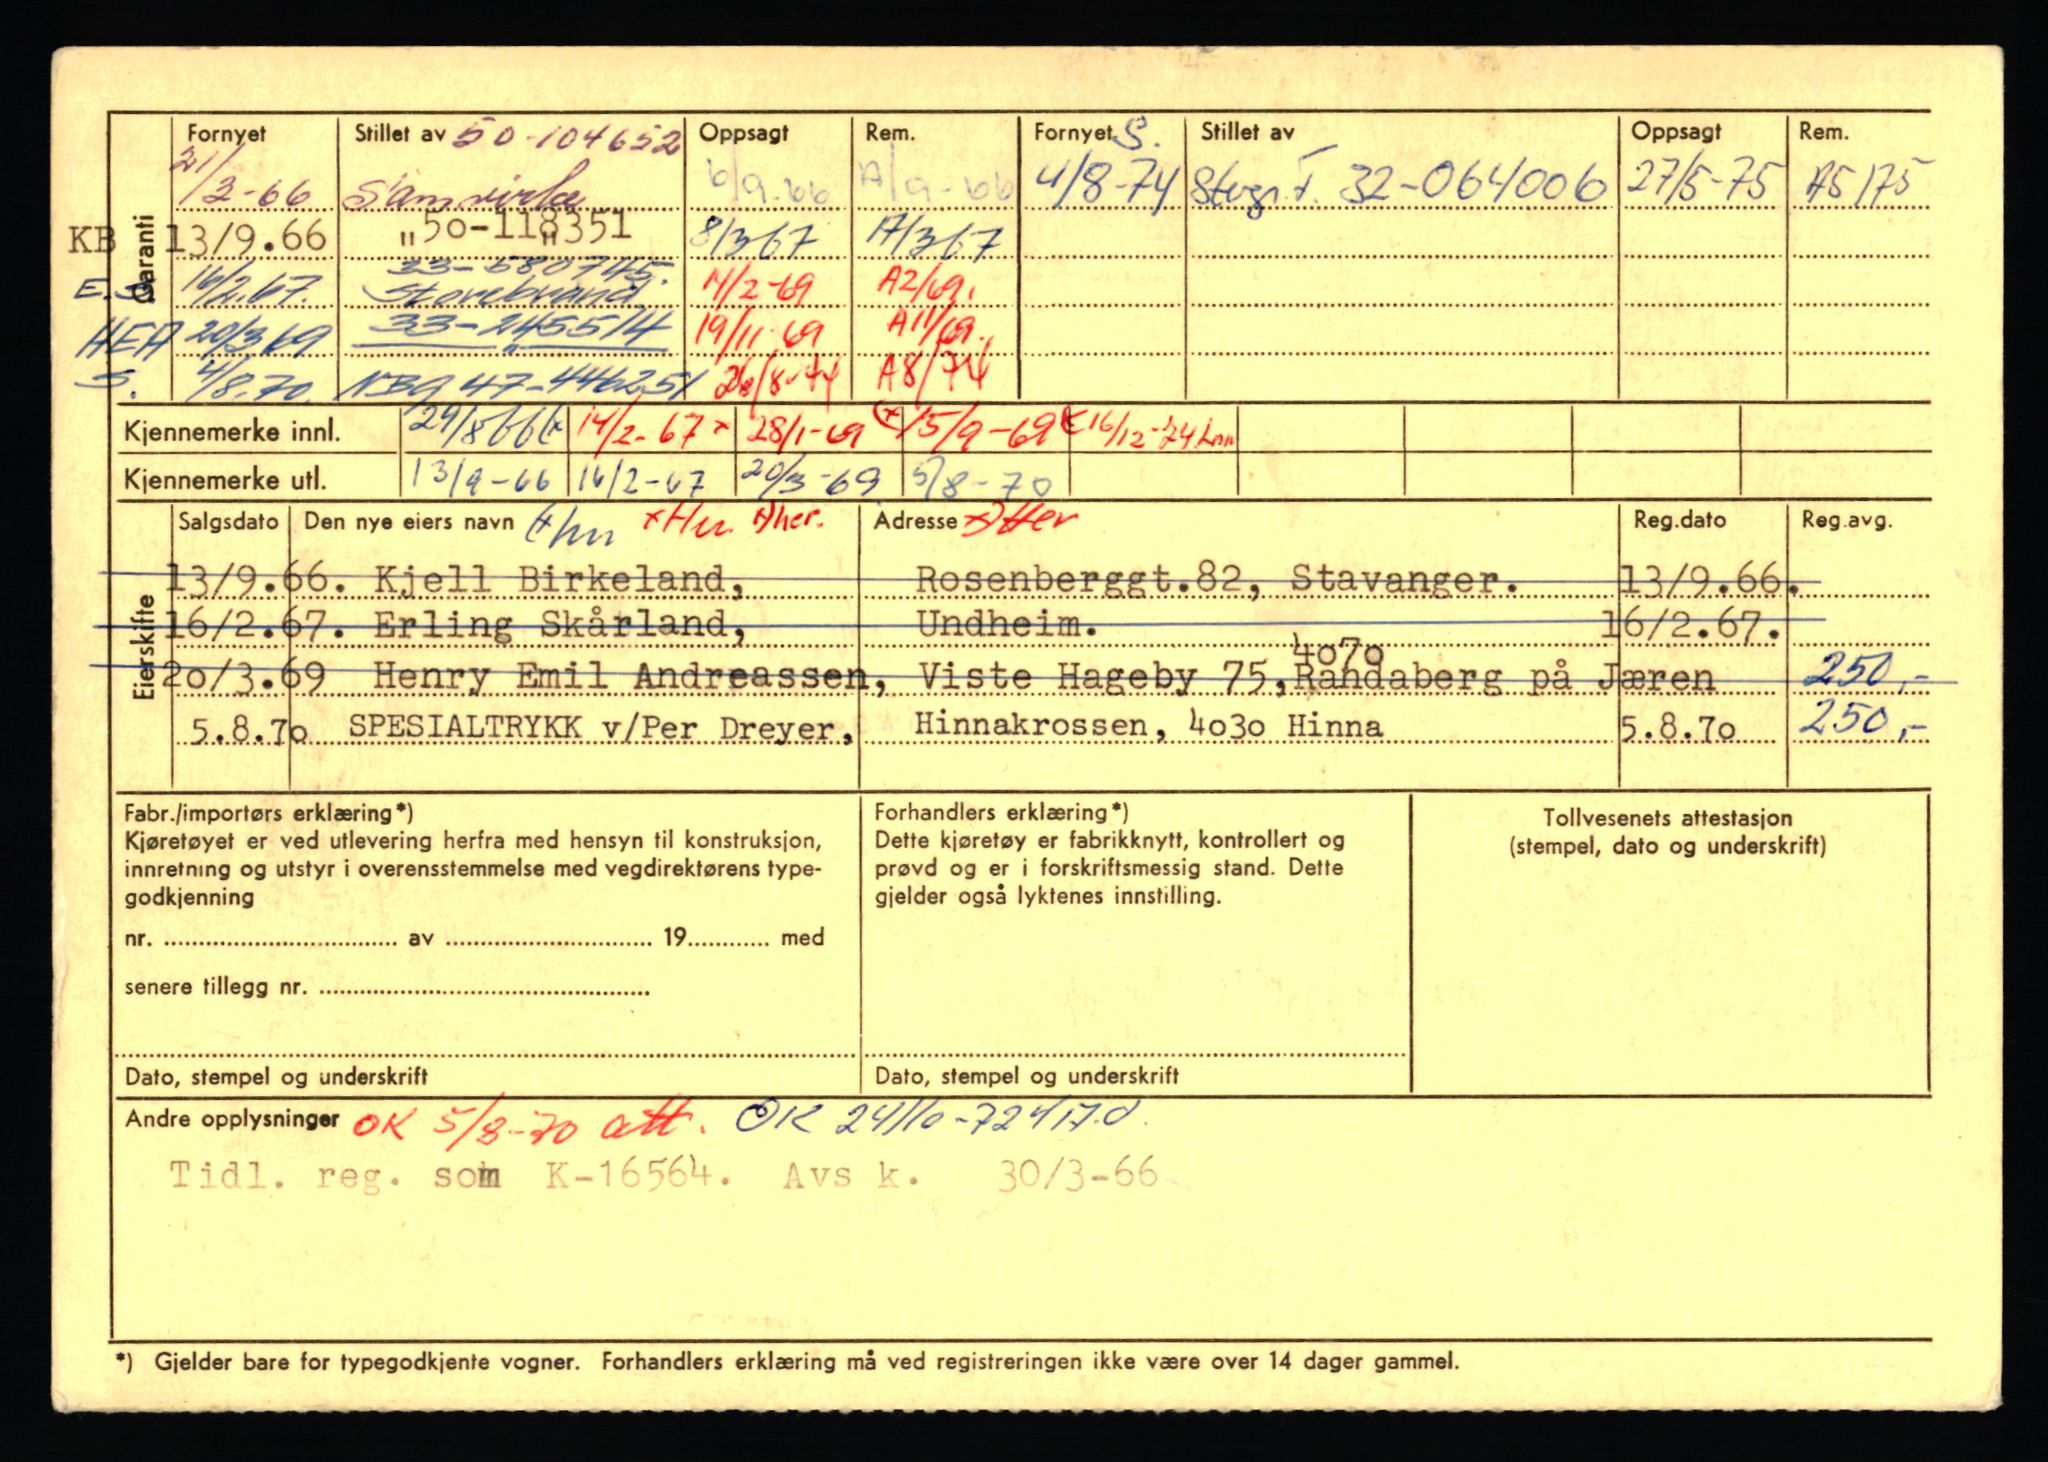 Garanti
Fornyet Stillet av 50-104652 Oppsagt Rem. Fornyet S. Stillet av Oppsagt Rem.
21/3-66 Samvirke 6/9.66 A/9-66 4/8-74 32-064006 27/5-75 A5/75
KB 13/9.66 "50-118351 8/3 67 A/3 67
33-580745.
E.S. 16/2.67. Storebrand 11/2-69 A2/69.
HEA 20/3 69 33-245514 19/11-69 A11/69.
S. 4/8.70. 47-446251 26/8-74 A8/74
Kjennemerke innl. 29/8 66 (x 14/2-67 x 28/1-69 (x 15/9-69 16/12-74
Kjennemerke utl. 13/9-66 16/2-67 20/3-69 5/8-70
Eierskifte
Salgsdato Den nye eiers navn Adresse Reg.dato Reg.avg.
13/9.66. Kjell Birkeland, Rosenberggt.82, Stavanger. 13/9.66.
16/2.67. Erling Skårland, Undheim. 16/2.67.
4070
20/3.69 Henry Emil Andreassen, Viste Hageby 75, Randaberg på Jæren 250,-
5.8.70 SPESIALTRYKK v/Per Dreyer, Hinnakrossen, 4030 Hinna 5.8.70 250,-
Fabr./importørs erklæring*)
Kjøretøyet er ved utlevering herfra med hensyn til konstruksjon,
innretning og utstyr i overensstemmelse med vegdirektørens type-
godkjenning
nr. av 19 med
senere tillegg nr.
Dato, stempel og underskrift
Forhandlers erklæring*)
Dette kjøretøy er fabrikknytt, kontrollert og
prøvd og er i forskriftsmessig stand. Dette
gjelder også lyktenes innstilling.
Dato, stempel og underskrift
Tollvesenets attestasjon
(stempel, dato og underskrift)
Andre opplysninger OK 5/8-70 att. OK 24/10-72
Tidl. reg. som K-16564. Avs k. 30/3-66
*) Gjelder bare for typegodkjente vogner. Forhandlers erklæring må ved registreringen ikke være over 14 dager gammel.